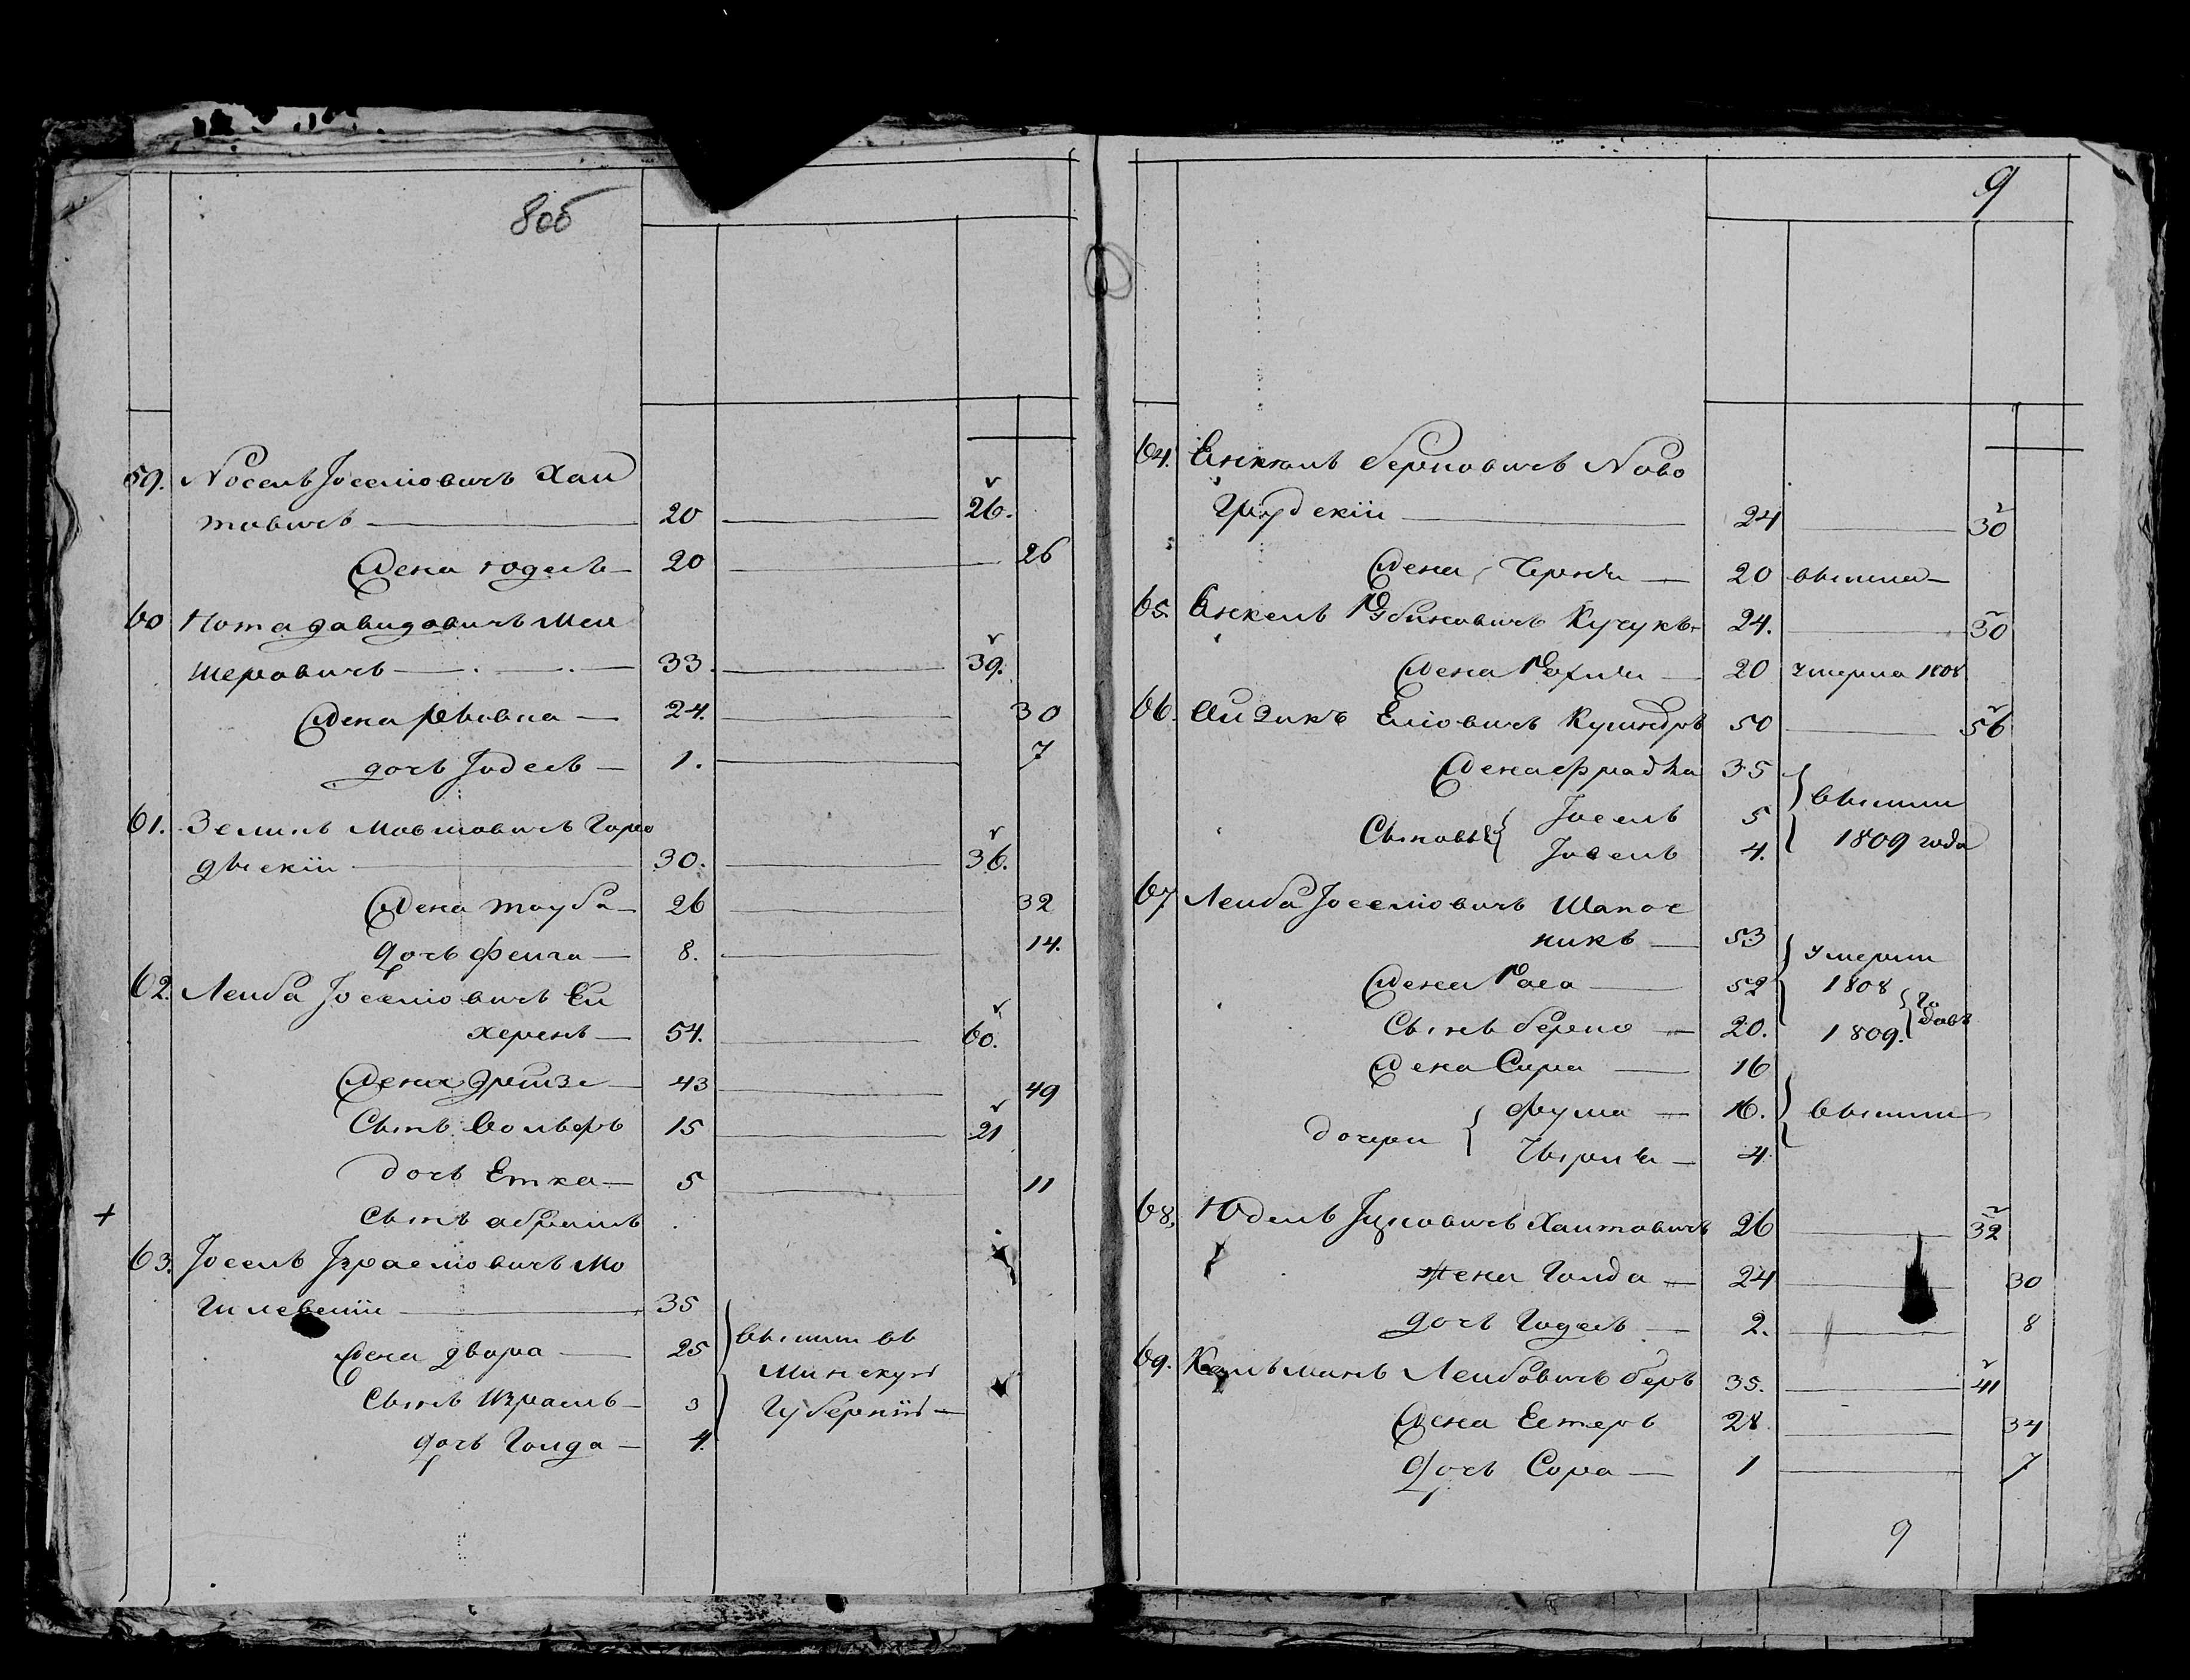 8об
59. Носель Іоселіовичъ Хаи
товичъ — 20 — 26.
Жена годесъ — 20 — 26
60 Нота давидовичъ Меи
шеровичъ — 33. — 39.
Жена — 24. — 30
дочь Іодесъ — 1. — 7
61. Зелигъ Мовшовичъ Горо
дыскіи — 30. — 36.
Жена тауба — 26 — 32
дочь фейга — 8. — 14.
62. Леиба Іоселіовичъ Еи
херенъ — 54. — 60.
Жена дрейзе — 43 — 49
Сынъ Вольфъ 15 — 21
дочь Етка — 5 — 11
+ Сынъ абрамъ
63. Іосель Ізраеліовичъ Мо
гилевскіи — 35
Жена двора — 25 вышли въ
Минскую
Сынъ Израиль — 3 Губернію —
дочь Голда — 4.
9
64. Янкель берковичъ Ново
грудскіи — 24 — 30
Жена Черня — 20 вышла —
65. Янкель Рубиновичъ Кучукъ 24. — 30
Жена Рохля — 20 умерла 1808
66. Айзикъ Еліовичъ Кушнеръ 50 — 56
Жена фрадка 35
вышли
Сыновья { Іосель 5
1809 года
Іовель 4.
67 Леиба Іоселіовичъ Шапос
никъ — 53
умерли
Жена Раса — 52 1808
го
довъ
Сынъ берко — 20. 1809.
Жена Сора — 16
дочери { фрума — 16. вышли
Чырля — 4
68. Юдель Іцковичъ Хаитовичъ 26 — 32
Жена Голда — 24 — 30
дочь Годесъ — 2. — 8
69. Кальманъ Леибовичъ беръ 35. — 41
Жена Естеръ 28. — 34
Дочь Сора — 1 — 7
9